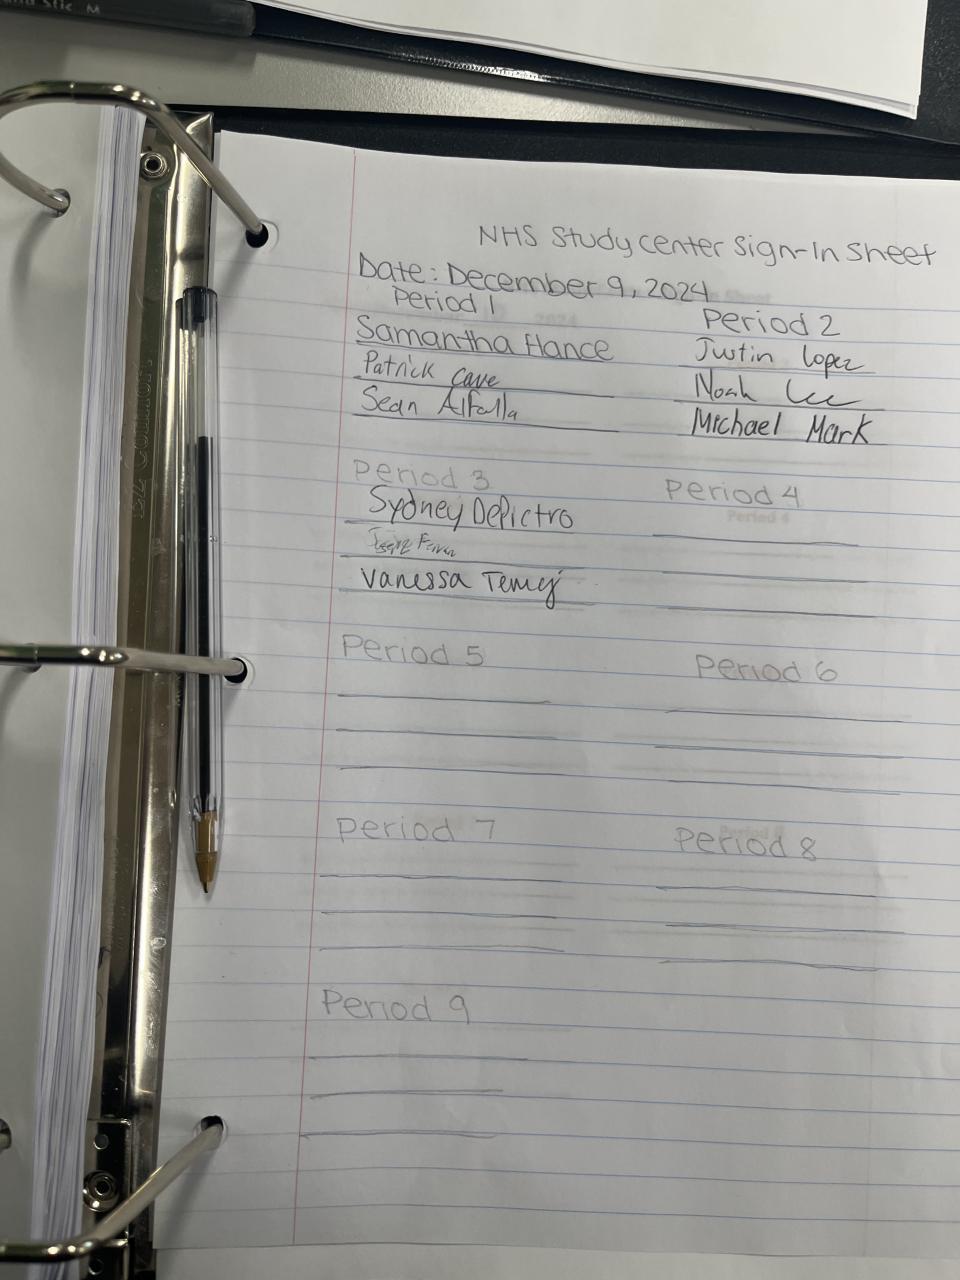 NHS Study center Sign-In Sheet
Date: December 9, 2024
Period 1
Samantha Hance
Patrick Cave
Sean Alfalla
Period 2
Justin Lopez
Noah Lee
Michael Mark
Period 3
Sydney DePictro
Vanessa
Period 4
Period 5
Period 6
Period 7
Period 8
Period 9